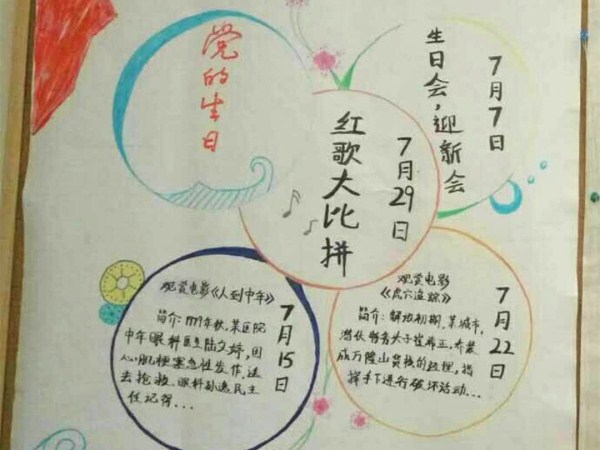 党的生日
生日会，迎新会
7月7日
红歌大比拼
7月29日
观赏电影《人到中年》
简介：1979年秋，某医院
中年眼科医生陆文婷，因
心肌梗塞急性发作，送
去抢救。眼科孙逸民主
任记得...
7月15日
观赏电影
《虎穴追踪》
简介：解放初期，某城市，
潜伏特务头子崔希正，乔装
成万隆山货栈的经理，指
挥手下进行破坏活动...
7月22日